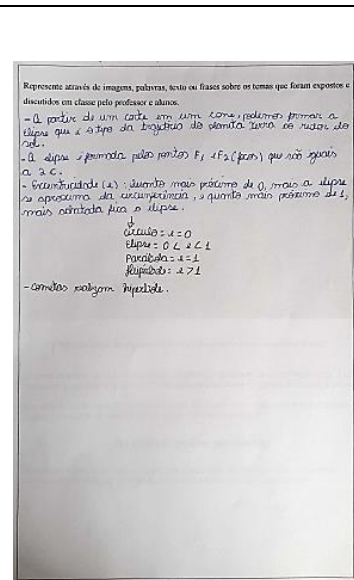 Represente através de imagens, palavras, texto ou frases sobre os temas que foram expostos e
discutidos em classe pelo professor e alunos.
- A partir de um corte em um cone, podemos formar a
elipse que é o tipo da trajetória do planeta Terra ao redor do
sol.
- A elipse é formada pelos pontos F1 e F2 (focos) que são iguais
a 2c.
- Excentricidade (e): quanto mais próximo de 0, mais a elipse
se aproxima da circunferência, e quanto mais próximo de 1,
mais achatada fica a elipse.
↓
Círculo: e = 0
Elipse: 0 < e < 1
Parábola: e = 1
Hipérbole: e > 1
- Cometas realizam hipérbole.